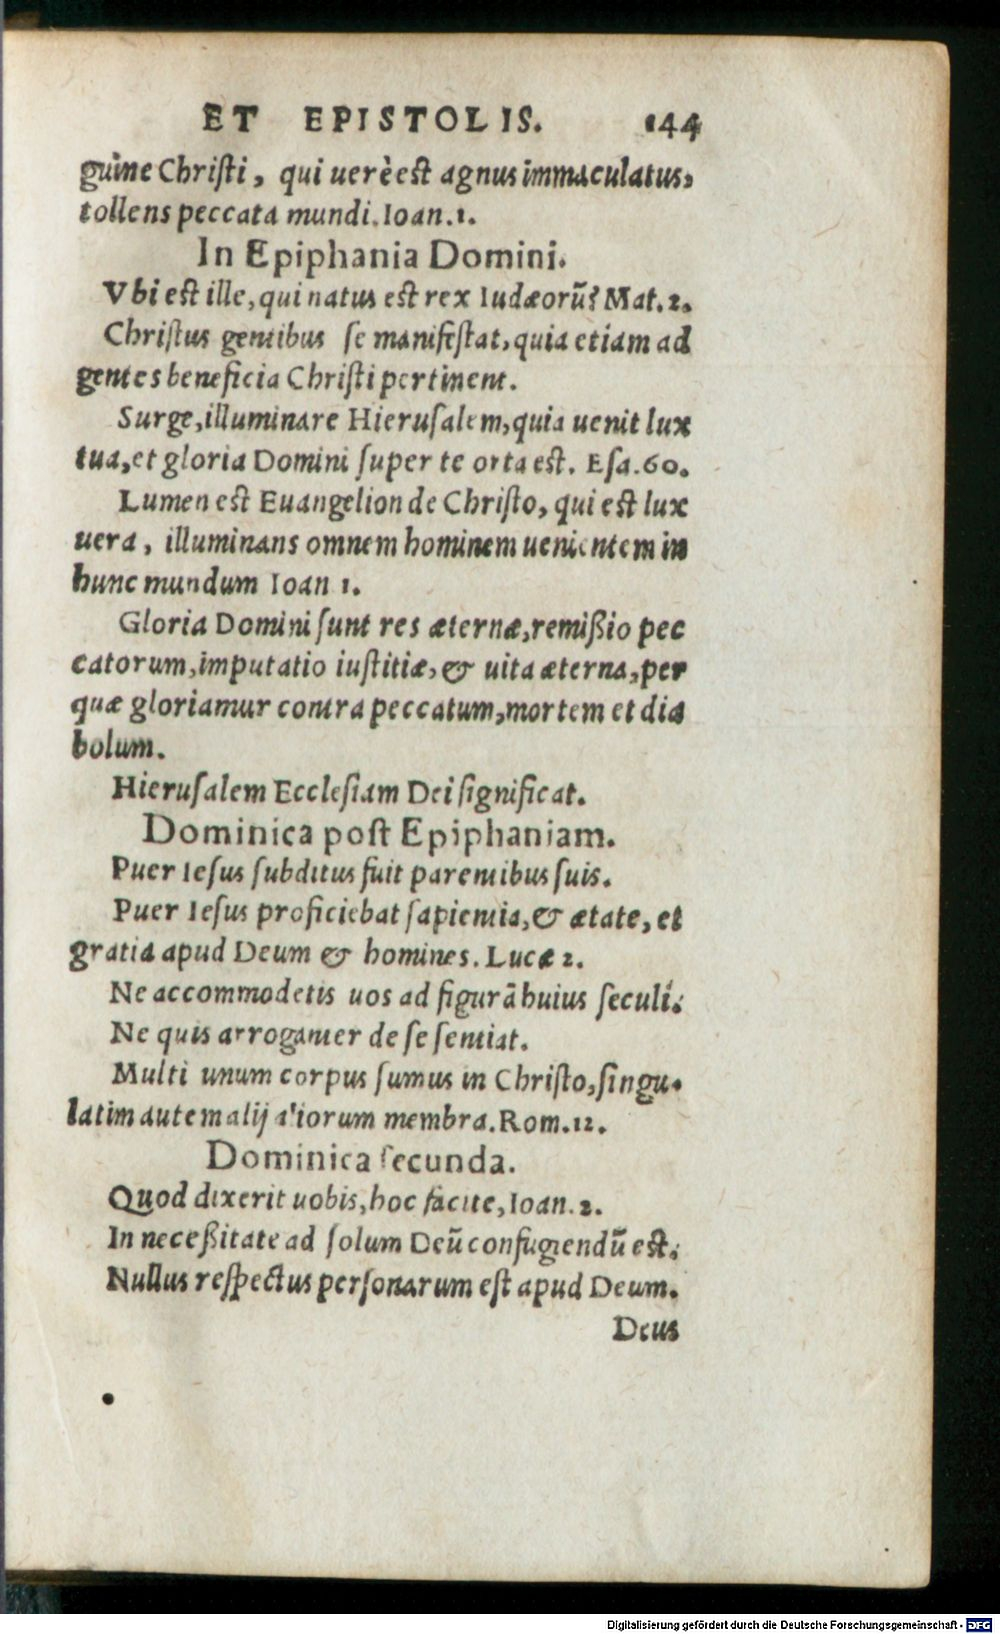 ET EPISTOLIS. 144
guine Christi, qui uerè est agnus immaculatus,
tollens peccata mundi. Ioan.1.
In Epiphania Domini.
Vbi est ille, qui natus est rex Iudæorũ? Mat.2.
Christus gentibus se manifestat, quia etiam ad
gentes beneficia Christi pertinent.
Surge, illuminare Hierusalem, quia uenit lux
tua, et gloria Domini super te orta est. Esa.60.
Lumen est Euangelion de Christo, qui est lux
uera, illuminans omnem hominem uenientem in
hunc mundum Ioan 1.
Gloria Domini sunt res æternæ, remißio pec
catorum, imputatio iustitiæ, & uita æterna, per
quæ gloriamur contra peccatum, mortem et dia
bolum.
Hierusalem Ecclesiam Dei significat.
Dominica post Epiphaniam.
Puer Iesus subditus fuit parentibus suis.
Puer Iesus proficiebat sapientia, & ætate, et
gratia apud Deum & homines. Lucæ 2.
Ne accommodetis uos ad figurã huius seculi.
Ne quis arroganter de se sentiat.
Multi unum corpus sumus in Christo, singu-
latim autem alij aliorum membra. Rom.12.
Dominica secunda.
Quod dixerit uobis, hoc facite, Ioan.2.
In neceßitate ad solum Deũ confugiendũ est.
Nullus respectus personarum est apud Deum.
Deus
Digitalisierung gefördert durch die Deutsche Forschungsgemeinschaft - DFG